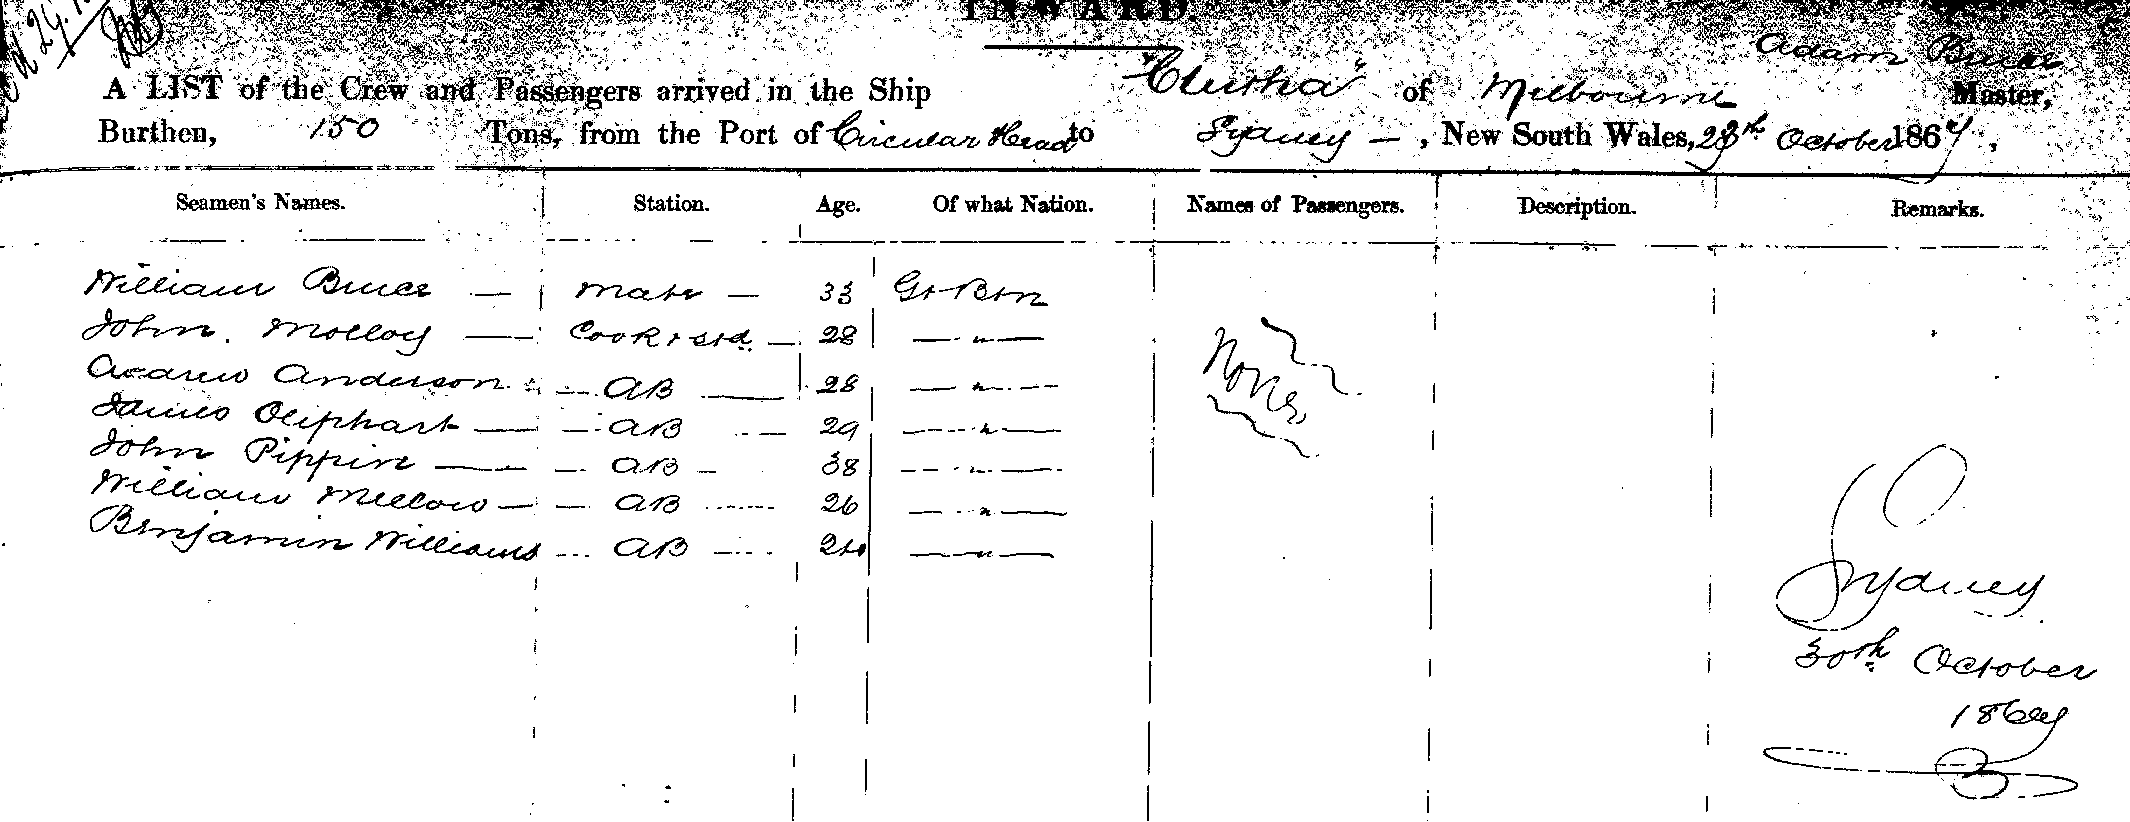 INWARD.
Adam Bruce
A LIST of the Crew and Passengers arrived in the Ship "Clutha" of Melbourne Master,
Burthen, 150 Tons, from the Port of Circular Head to Sydney — , New South Wales, October 186 ,
Seamen's Names. Station. Age. Of what Nation. Names of Passengers. Description. Remarks.
William Bruce — Mate — 33 Gt Btn
John. Molloy — Cook & Std. — 28 — " —
Andrew Anderson — AB — 28 — " —
James Oliphant — AB — 29 — " —
John Pippin — AB — 38 — " —
William Mellow — AB — 26 — " —
Benjamin Williams — AB — 24 — " —
None
Sydney
30th October